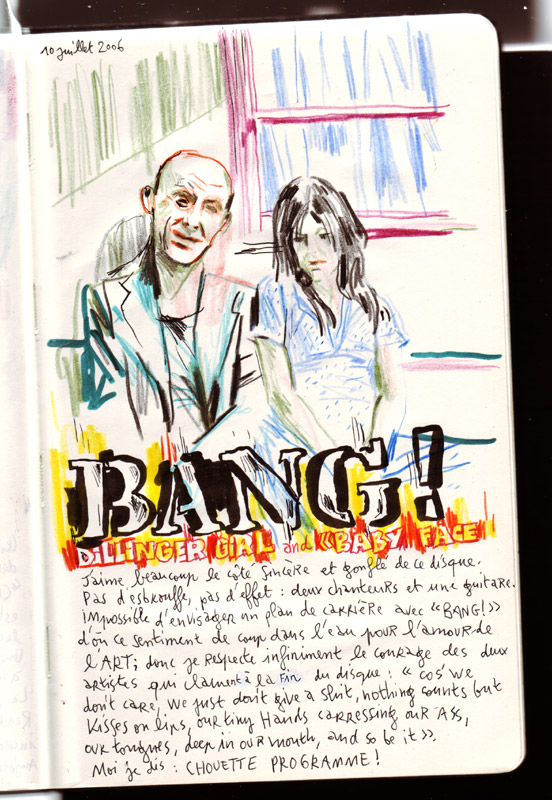 10 juillet 2006
BANG!
DILLINGER GIRL and «BABY FACE
J'aime beaucoup le côté sincère et gonflé de ce disque.
Pas d'esbrouffe, pas d'effet : deux chanteurs et une guitare.
Impossible d'envisager un plan de carrière avec «BANG!»
d'où ce sentiment de coup dans l'eau pour l'amour de
l'ART; donc je respecte infiniment le courage des deux
artistes qui clament à la fin du disque : "cos' we
don't care, we just don't give a shit, nothing counts but
kisses on lips, our tiny hands carressing our ass,
our tongues, deep in our mouth, and so be it».
Moi je dis : CHOUETTE PROGRAMME!